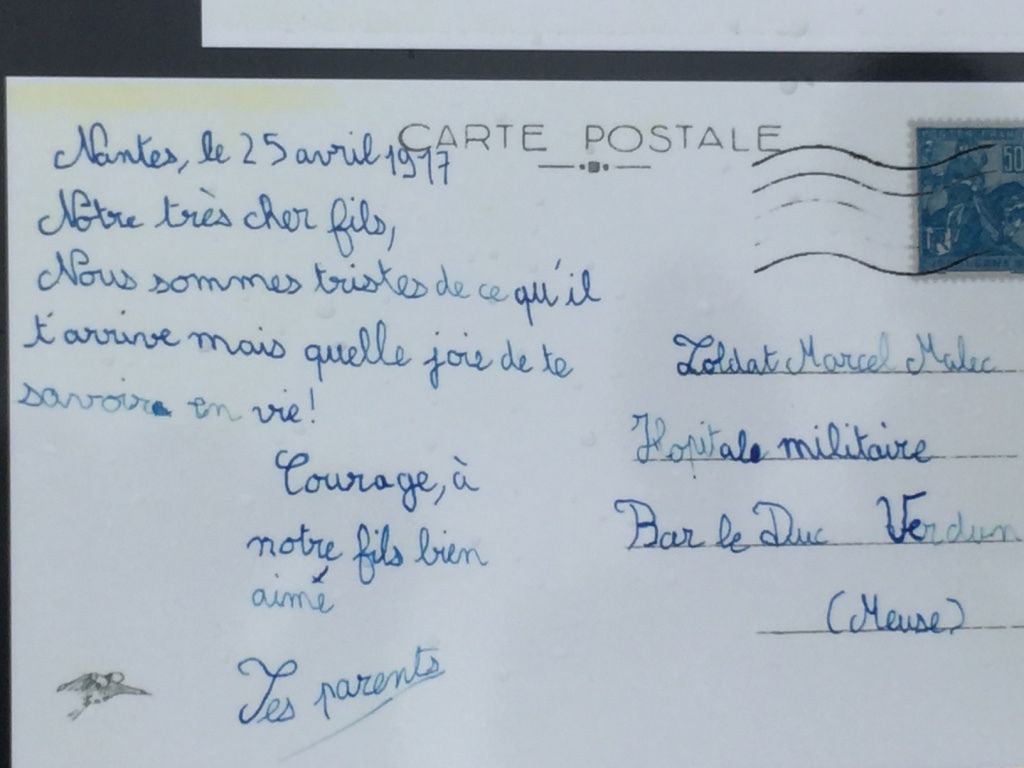 CARTE POSTALE
Nantes, le 25 avril 1917
Notre très cher fils,
Nous sommes tristes de ce qu'il
t'arrive mais quelle joie de te
savoir en vie!
Courage, à
notre fils bien
aimé
Tes parents
Soldat Marcel Malec
Hopitale militaire
Bar le Duc Verdun
(Meuse)
50